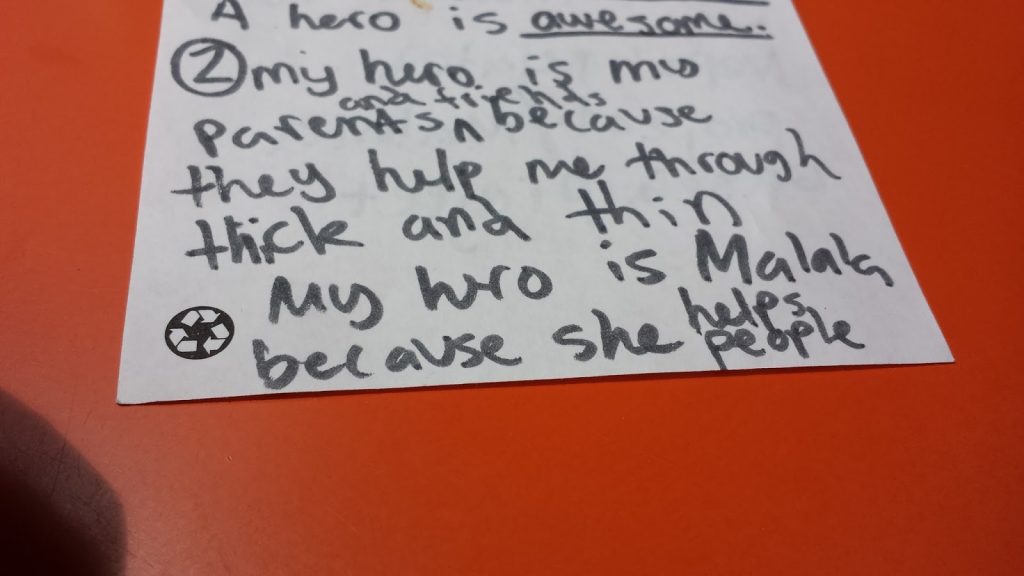 A hero is awesome.
② my hero is my
and friends
parents ^ because
they help me through
thick and thin
My hero is Malala
because she helps
people